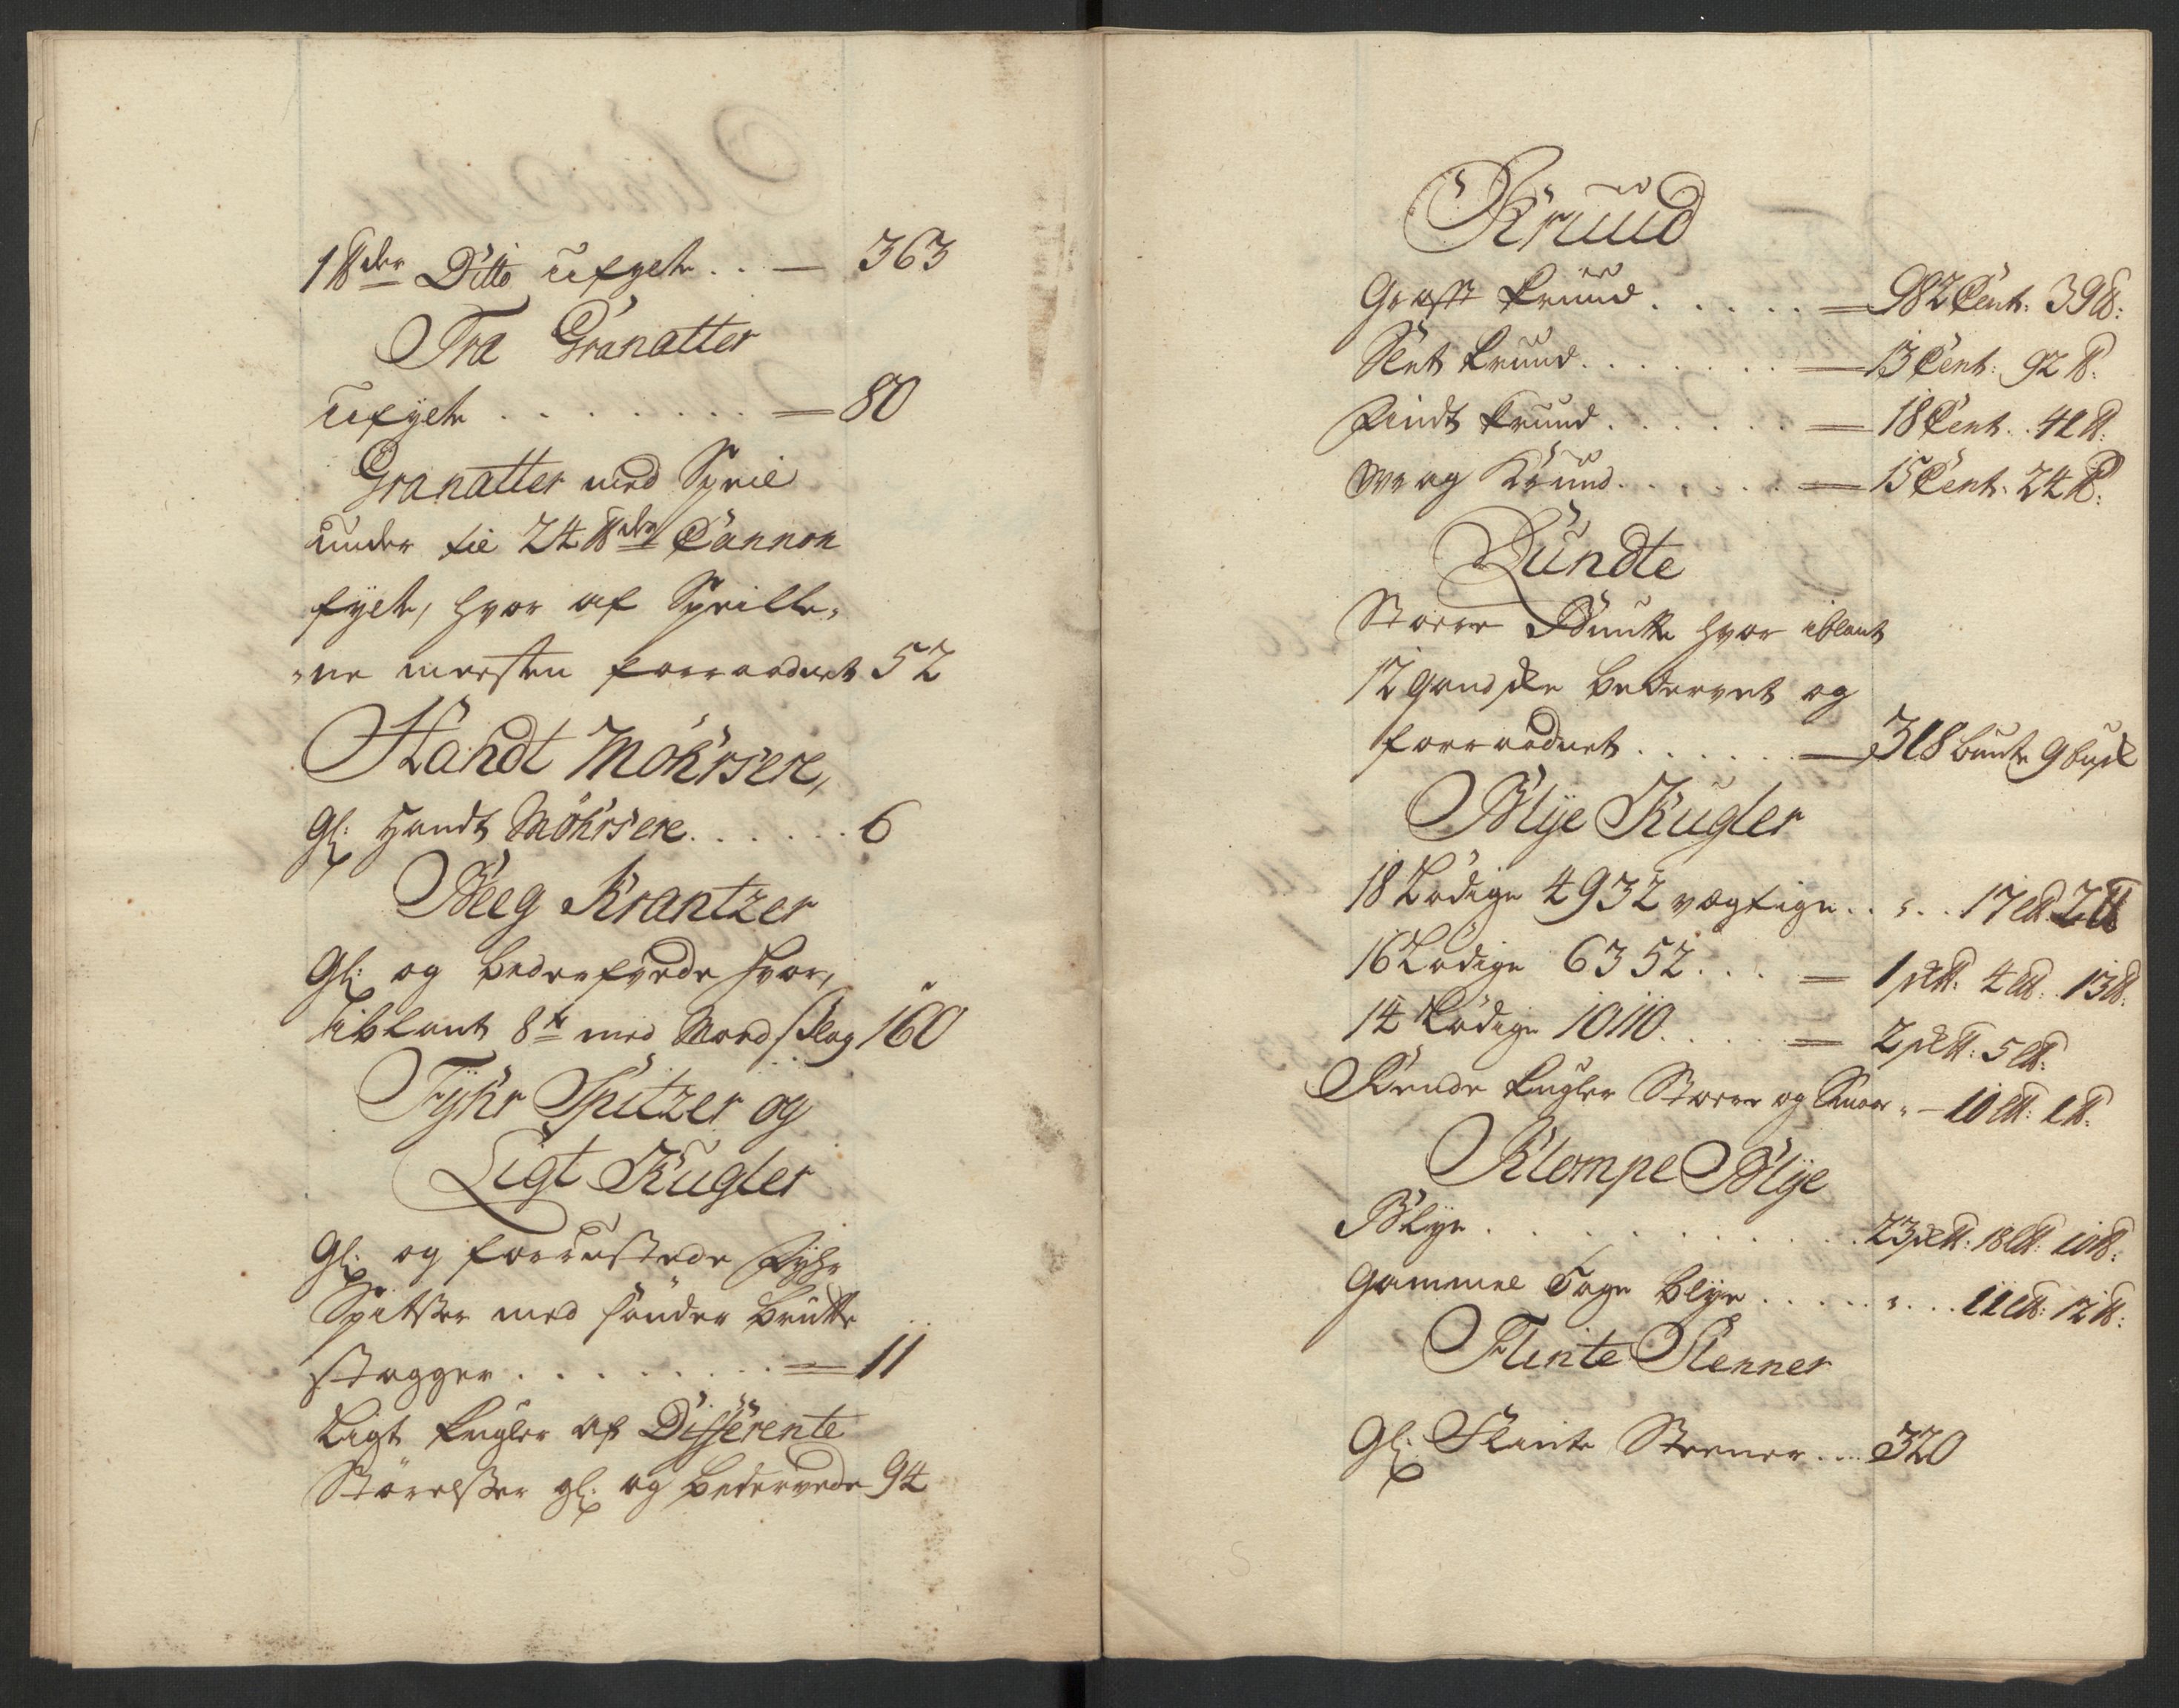 1 ℔der Ditto ufyelt .. — 363
Træ Granatter
ufyelt ........ = 80
Granatter med Speil
under til 24 ℔der Cannon
fyelt, hvor af Speille-
-ne meesten forraadnet 52
Handt Möhrsere,
Gl: Handt Möhrsere ...... 6
Beeg Krantzer
Gl: og bederfvede hvor,
iblant 8te med Mordslag 160
Fyhr Spitzer og
Ligt Kugler
Gl: og forrustede Fyhr
Spitser med sönder brutte
stagger ........ = 11
Ligt Kugler af Differente
Störelser gl: og bedervede 94
Kruud
Groft Kruud ..... = 982 Cent: 39 ℔:
Slet Kruud ....... = 13 Cent: 92 ℔:
Findt Kruud ...... = 18 Cent: 41 ℔:
Wrag Kruud ...... = 15 Cent: 24 ℔:
Lundte
Storre Bundte hvor iblant
12 gandske bedervet og
forraadnet ..... = 318 bundte 9 bugt
Blye Kugler
18 Lodige 4932 vegtige .. „ .. 17 L℔ 2 ℔
16 Lodige 6352 ... = 1 sk℔: 4 L℔: 13 ℔:
14 Lodige 10110 .... = 2 sk℔: 5 L℔:
Rende Kugler Storre og Smaae „ — 10 L℔: 1 ℔:
Klompe Blye
Blye ........... 23 sk℔: 18 L℔: 10 ℔:
Gammel Tage blye ..... „ ... 11 L℔: 12 ℔:
Flinte Stenner
Gl: Flinte Steener ... 320